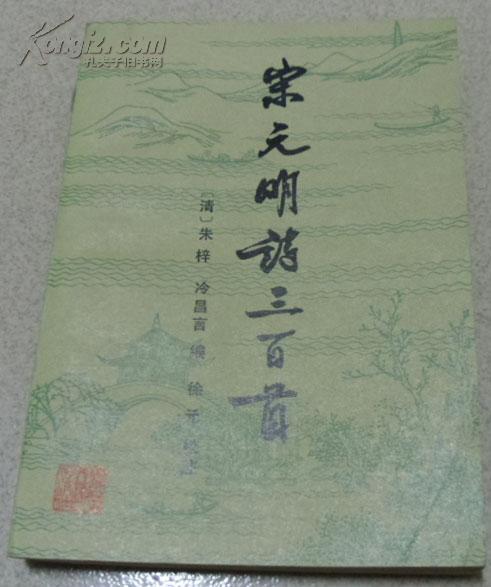 Kongfz.com
孔夫子旧书网
宋元明诗三百首
〔清〕朱梓 冷昌言 编 徐元 校注